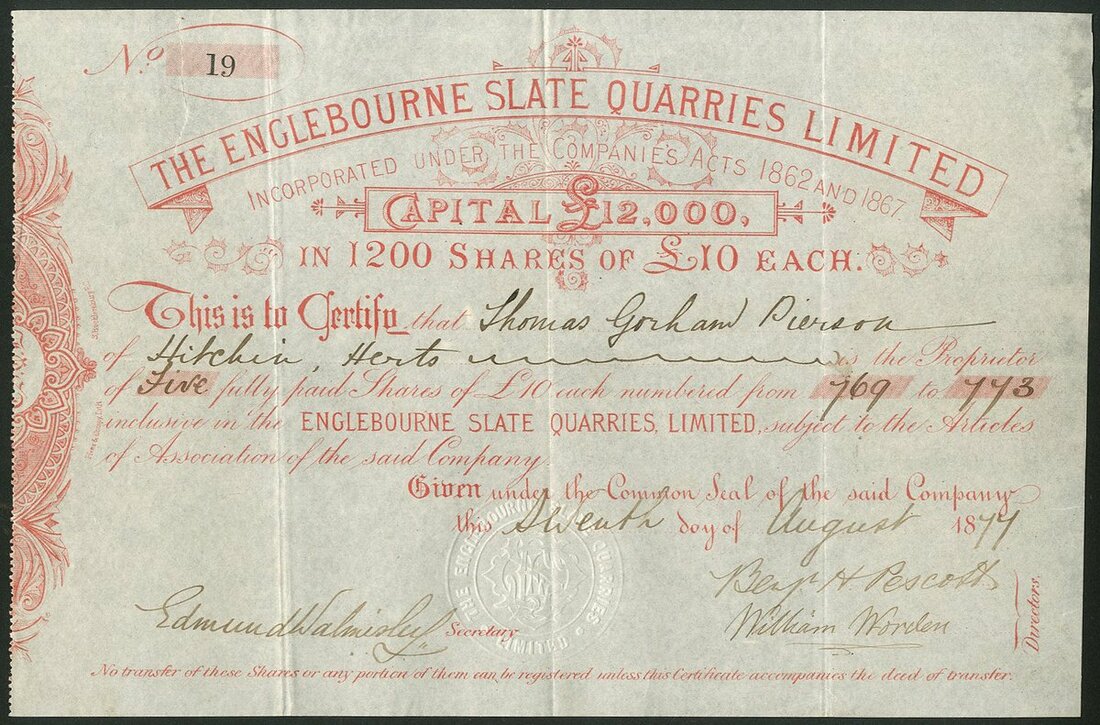 No. 19
THE ENGLEBOURNE SLATE QUARRIES LIMITED
INCORPORATED UNDER THE COMPANIES ACTS 1862 AND 1867.
CAPITAL £12,000,
IN 1200 SHARES OF £10 EACH.
This is to Certify that Thomas Gorham Pierson
of Hitchin, Herts is the Proprietor
of Five fully paid Shares of £10 each numbered from 769 to 773
inclusive in the ENGLEBOURNE SLATE QUARRIES, LIMITED, subject to the Articles
of Association of the said Company.
Given under the Common Seal of the said Company
this Seventh day of August 1877
THE ENGLEBOURNE SLATE QUARRIES LIMITED
Benj. H Pescott
William Worden
Directors.
Edmund Walmisley Secretary.
No transfer of these Shares or any portion of them can be registered unless this Certificate accompanies the deed of transfer.